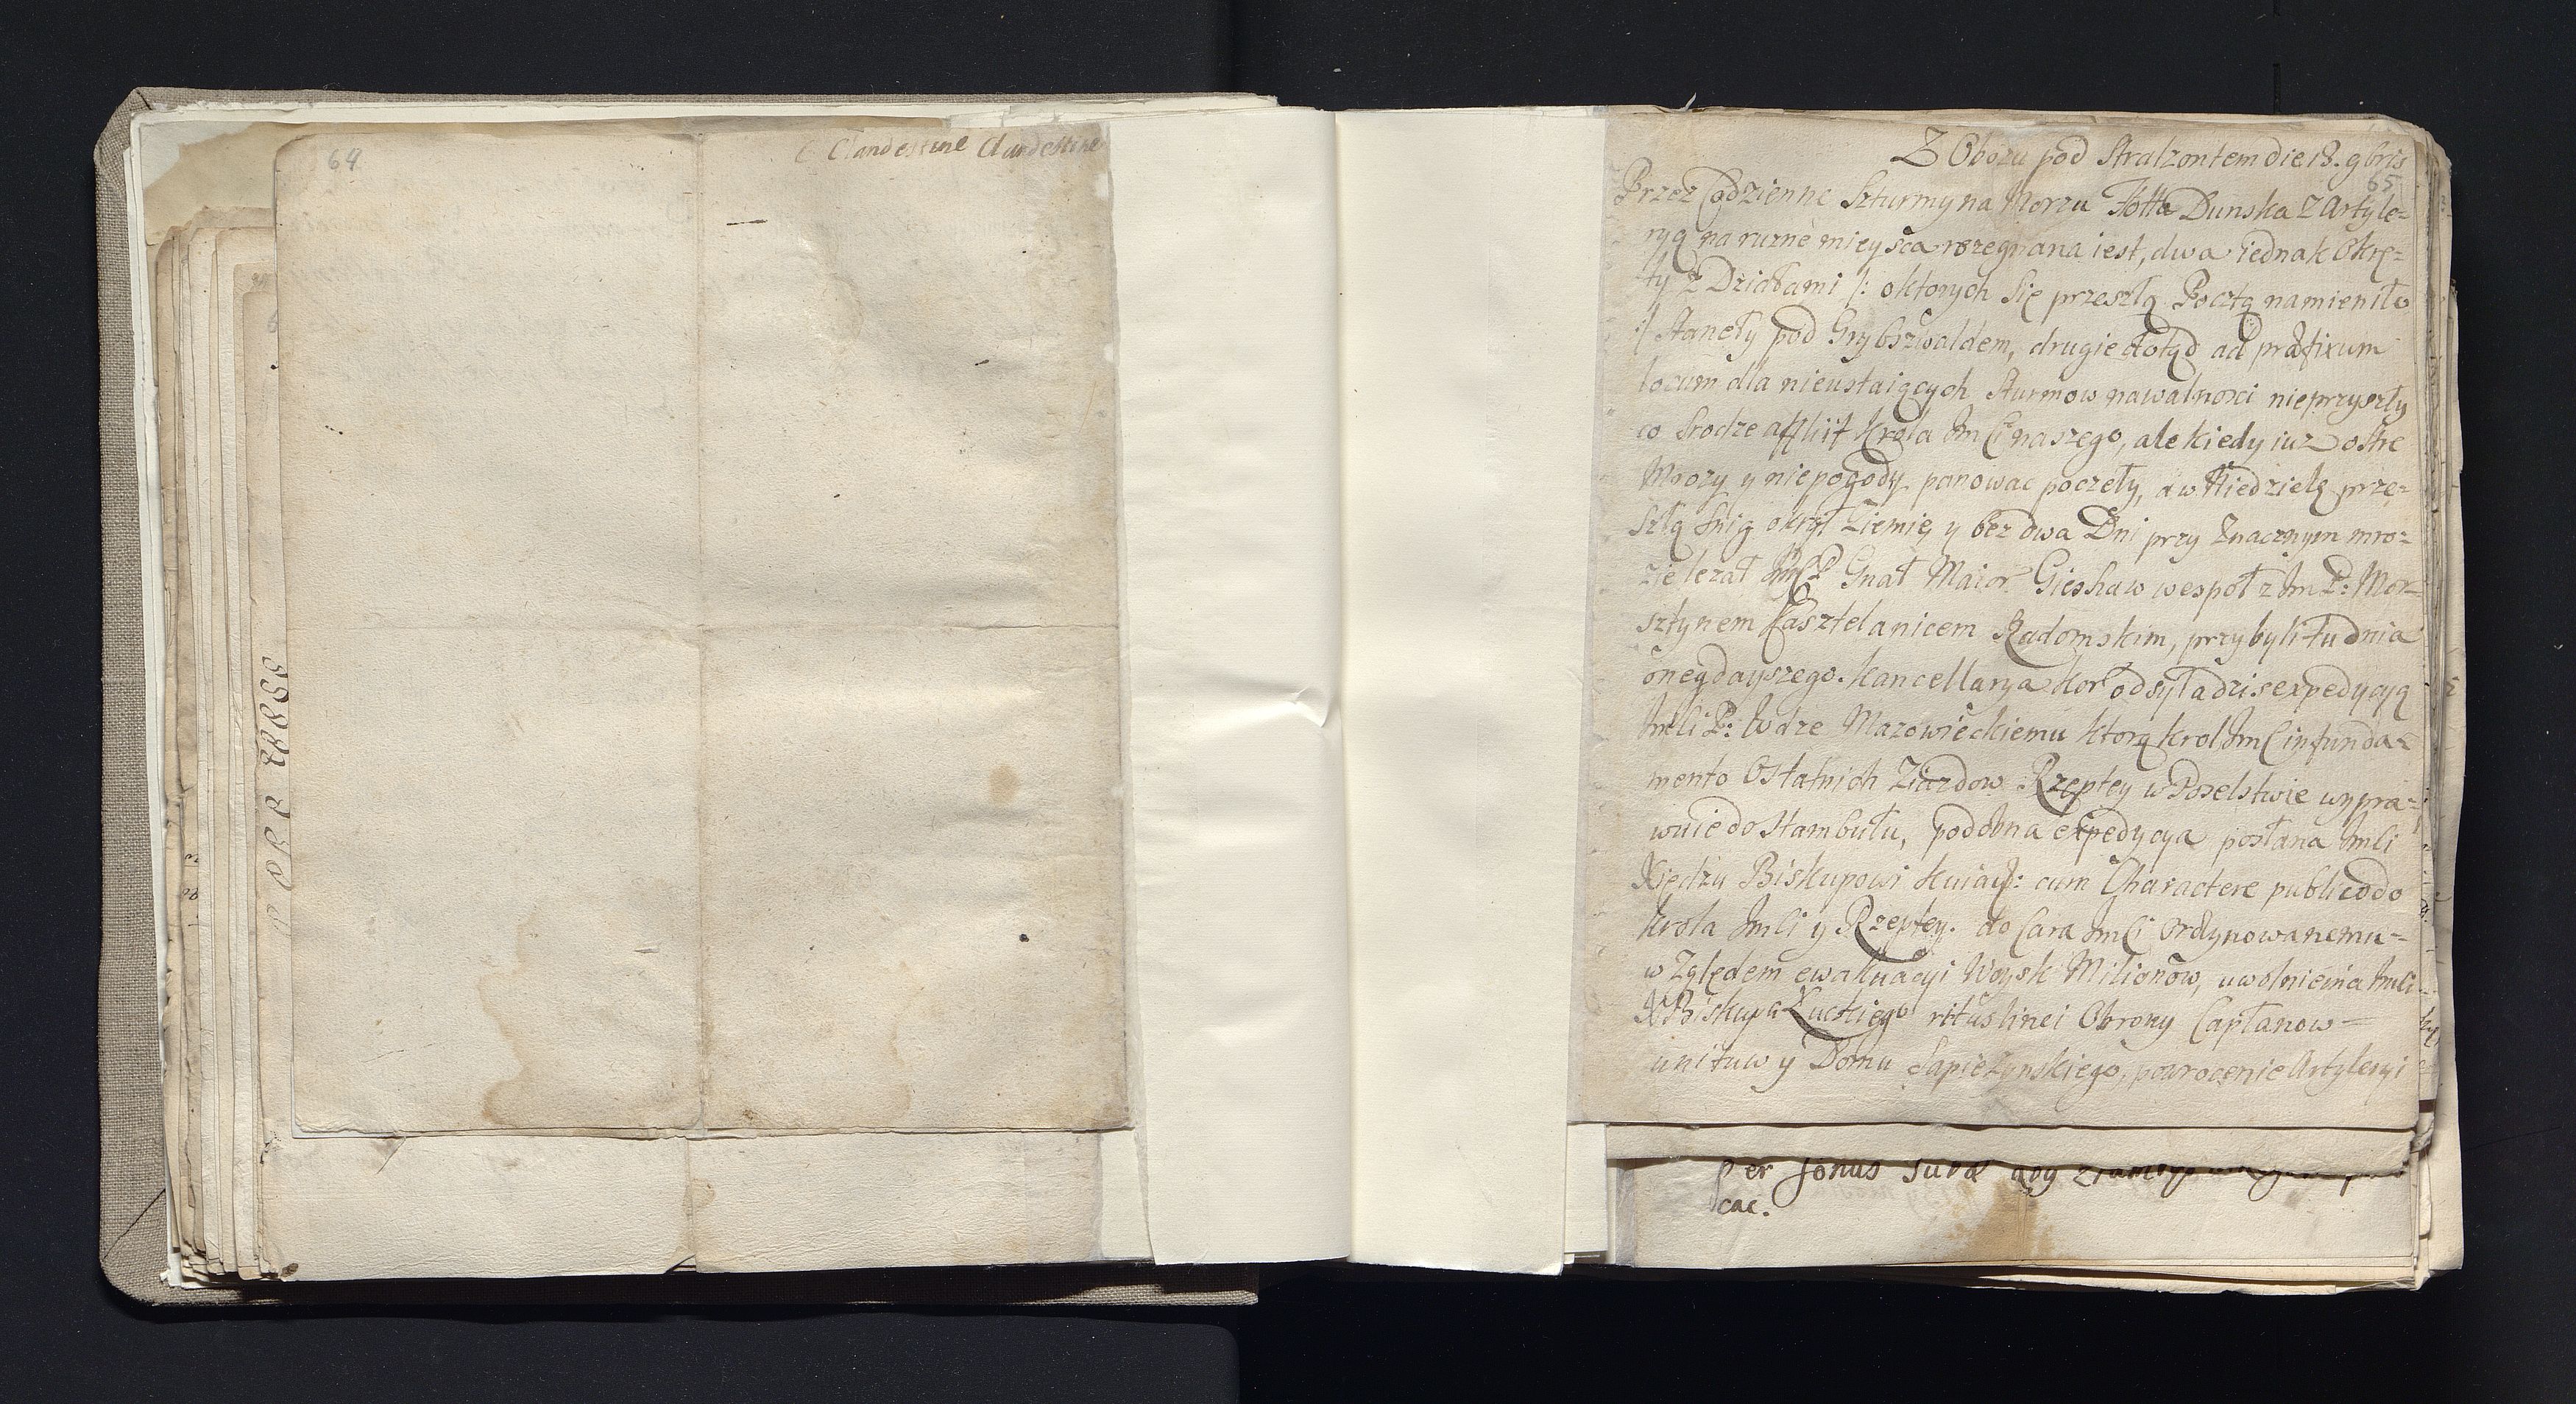 64
C Clandestine Clandestine
Z Obozu pod Stralzontem die 18. 9bris
65
Przez Codzienne Szturmy na Morzu Flotta Dunska Z Artyle=
ryą na rurne mieysca rozegnana iest, dwa iednak Okrę=
ty z Działami /: oktorych się przeszłą Pocztą namieniło
:/ Staneły pod Grybszwaldem, drugie dotąd ad præfixum
locum dla nieustaiących Sturmow nawalnosci nieprzyszły
co srodze afflijt Krola Jmci naszego, ale kiedy iuz ostre
Mrozy y niepogody panowac poczeły, a w Niedzielę prze=
szłą snig okrył Ziemię y bez dwa Dni przy Znacznym mro=
zie lezał JmcP Gnał Maior Gieshaw wespoł z Jm P: Mor=
sztynem Kasztelanicem Radomskim, przybyli tu dnia
onegdayszego. Kancellarya Kor odsyła dzis expedycyą
Jmci P: Wdze Mazowieckiemu ktorą Krol Jmc in funda=
mento Ostatnich Ziazdow Rzeptey w Poselstwie wypra=
wuie do Stambułu, podobna expedycya posłana Jmci
Xiędzu Biskupowi Kuiaw: cum Charactere publico do
Krola Jmci y Rzeptey. do Cara Jmci Ordynowanemu=
w Zględem ewakuacyi Woysk Milionow, uwolnienia Jmci
X Biskupa Łuckiego ritus linei Obrony Capłanow=
unituw y Domu Sapiezynskiego, powrocenie Artyleryi
Per sonus suræ
cac.